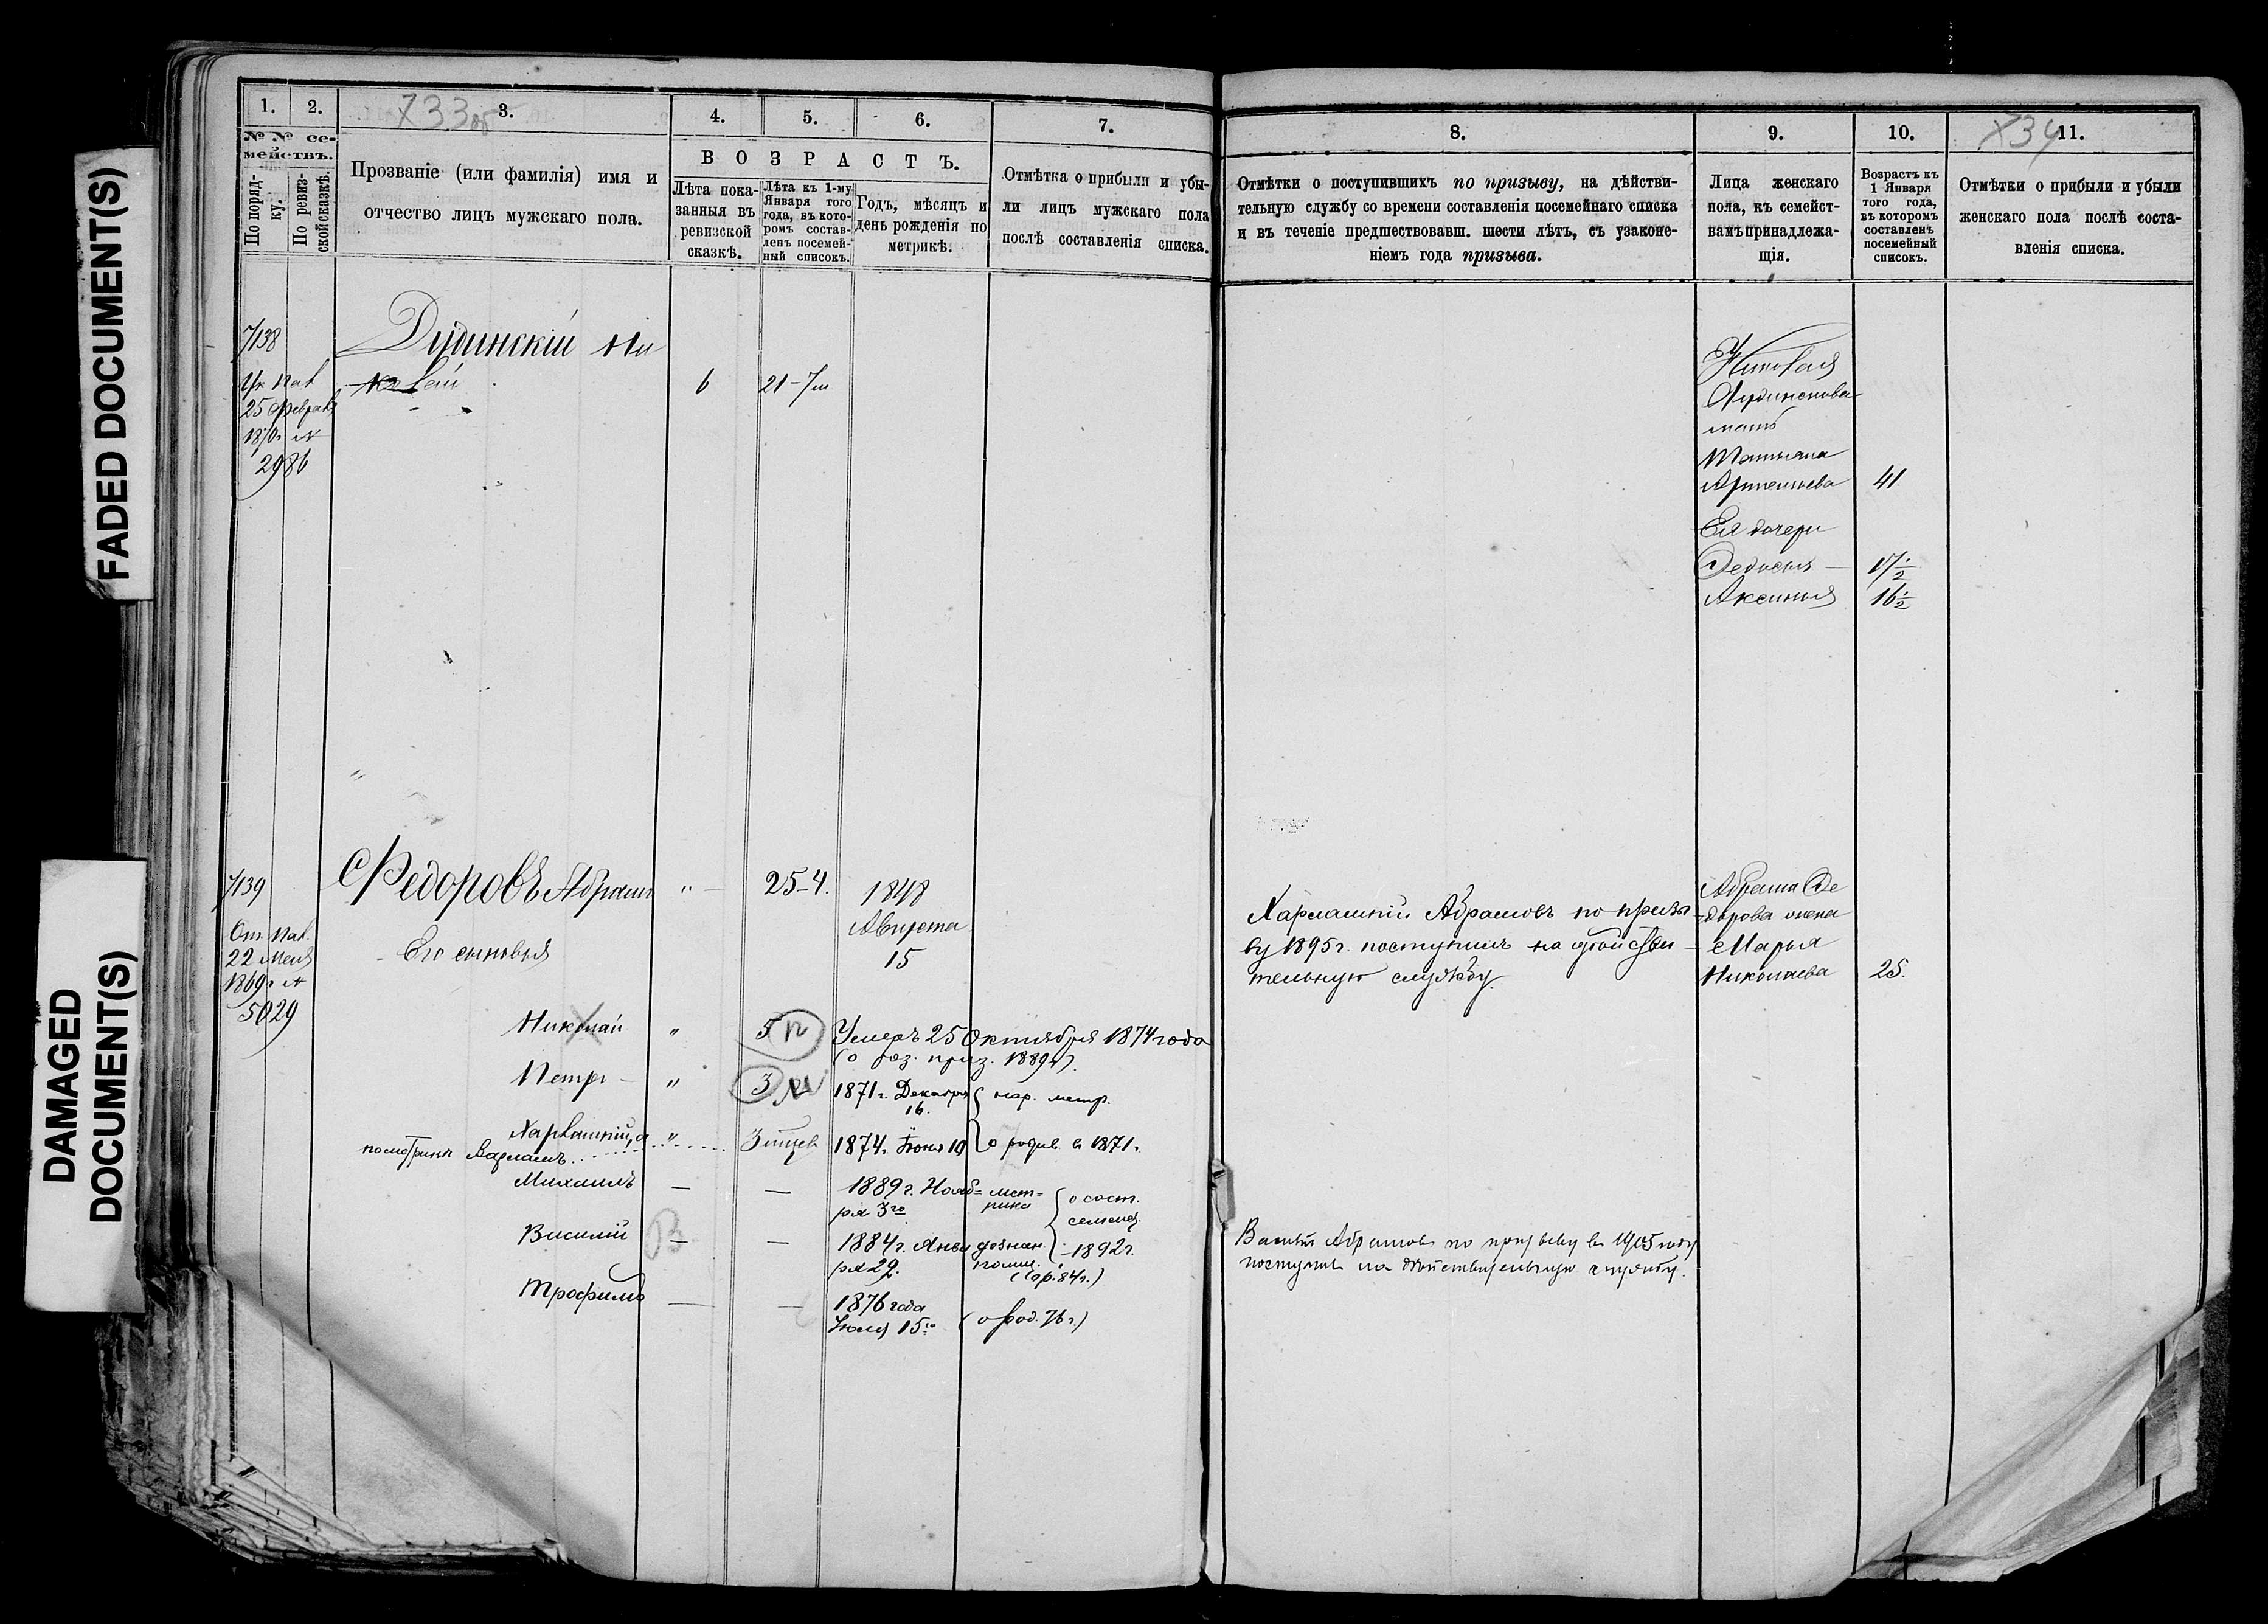 FADED DOCUMENT(S)
DAMAGED
DOCUMENT(S)
1.
2.
3.
4.
5.
6.
7.
733об
№ № се-
мействъ.
По поряд-
ку.
По ревиз-
ской сказкѣ.
Прозваніе (или фамилія) имя и
отчество лицъ мужскаго пола.
ВОЗРАСТЪ.
Лѣта пока-
занныя въ
ревизской
сказкѣ.
Лѣта къ 1-му
Января того
года, въ кото-
ромъ состав-
ленъ посемей-
ный списокъ.
Годъ, мѣсяцъ и
день рожденія по
метрикѣ.
Отмѣтка о прибыли и убы-
ли лицъ мужскаго пола
послѣ составленія списка.
7138
Ук Пал
25 Февраля
1870 г №
2986
Дудинскій Ни
колай
6
21-7м
7139
От. Пал.
22 Мая
1869 г №
5029
Федоровъ Абрамъ
"
25-4.
1848
Августа
15
Его сыновья
Николай
"
5
Умеръ 25 Октября 1874 года
(о роз. приз. 1889 г.)
Петръ
"
3
1871 г. Декабря
16.
нар. метр.
Харлампій, а
"
3 мцев
1874 г. Іюня 10
о родив. в 1871 г.
по метрикѣ Варламъ
Михаилъ
—
—
1889 г. Нояб-
ря 3го
мет-
рика
о сост.
семьи
Василій
—
—
1884 г. Янва
ря 29.
дознан.
полиц.
1892 г.
(о р. 84 г.)
Трофимъ
—
—
1876 года
Іюля 15го
(о род. 76 г.)
8.
9.
10.
11.
734
Отмѣтки о поступившихъ по призыву, на дѣйстви-
тельную службу со времени составленія посемейнаго списка
и въ теченіе предшествовавш. шести лѣтъ, съ узаконе-
ніемъ года призыва.
Лица женскаго
пола, къ семейст-
вамъ принадлежа-
щія.
Возрастъ къ
1 Января
того года,
въ которомъ
составленъ
посемейный
списокъ.
Отмѣтки о прибыли и убыли
женскаго пола послѣ соста-
вленія списка.
Николая
Дудинскова
мать
Татьяна
Артемьева
41
Ея дочери
Федосья —
17½
Аксинья
16½
Харлампій Абрамовъ по призы
ву 1895 г. поступилъ на дѣйстви-
тельную службу.
Абрама Фе
дорова жена
Марья
Николаева
25.
Василій Абрамовъ по призыву въ 1905 году
поступилъ на дѣйствительную службу.